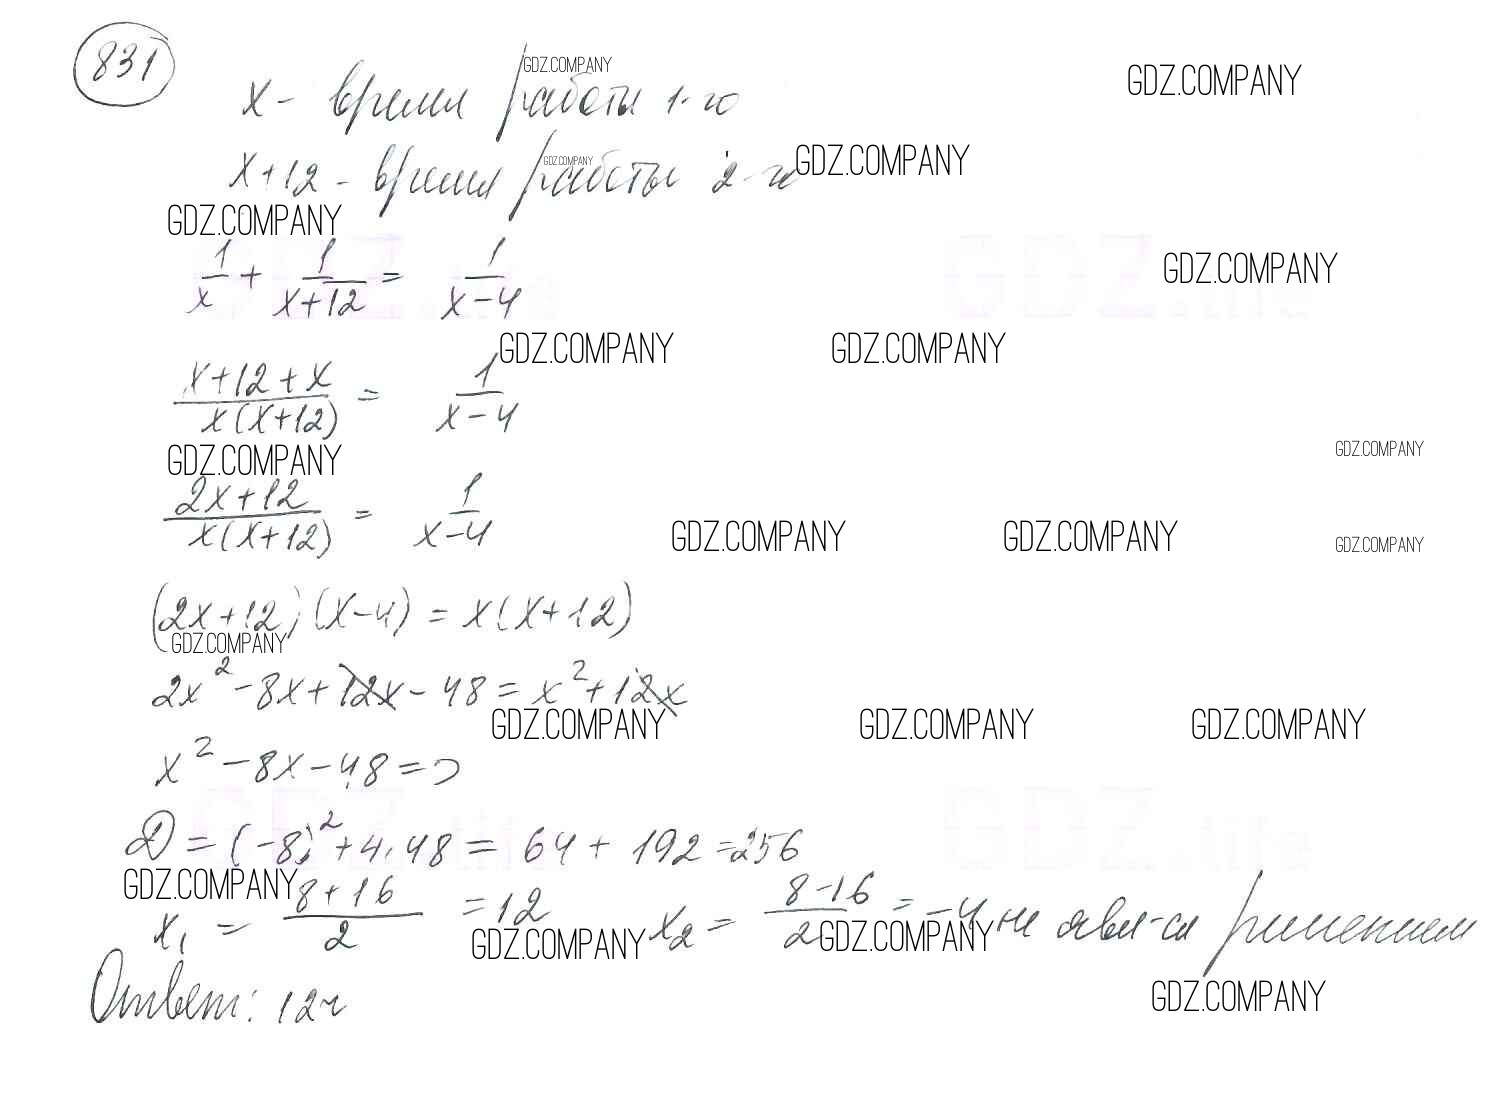 831
x - время работы 1-го GDZ.COMPANY GDZ.COMPANY
x+12 - время работы 2-го GDZ.COMPANY GDZ.COMPANY
GDZ.COMPANY
1/x + 1/(x+12) = 1/(x-4) GDZ.COMPANY
GDZ.life GDZ.life
GDZ.COMPANY GDZ.COMPANY
(x+12+x)/(x(x+12)) = 1/(x-4)
GDZ.COMPANY GDZ.COMPANY
(2x+12)/(x(x+12)) = 1/(x-4) GDZ.COMPANY GDZ.COMPANY GDZ.COMPANY
(2x+12)(x-4) = x(x+12)
GDZ.COMPANY
2x² - 8x + 12x - 48 = x² + 12x
GDZ.COMPANY GDZ.COMPANY GDZ.COMPANY
x² - 8x - 48 = 0
GDZ.life GDZ.life
D = (-8)² + 4·48 = 64 + 192 = 256
GDZ.COMPANY
x₁ = (8+16)/2 = 12 x₂ = (8-16)/2 = -4 не явл-ся решением
GDZ.COMPANY GDZ.COMPANY
Ответ: 12ч GDZ.COMPANY